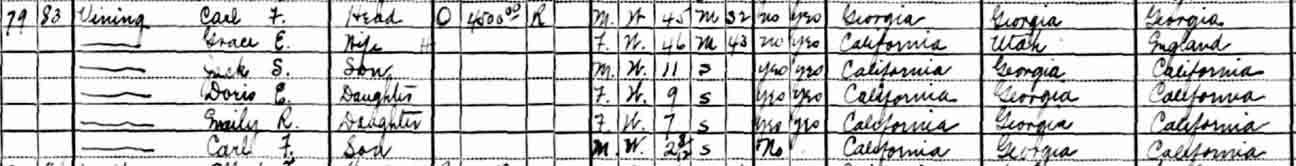 79 83 Vining Carl F. Head O 4500.00 R M. W. 45 M 32 no yes Georgia Georgia Georgia
Grace E. Wife H F. W. 46 M 43 no yes California Utah England
Jack S. Son M. W. 11 S yes yes California Georgia California
Doris E. Daughter F. W. 9 S yes yes California Georgia California
Emily R. Daughter F. W. 7 S yes yes California Georgia California
Carl F. Son M. W. S No California Georgia California